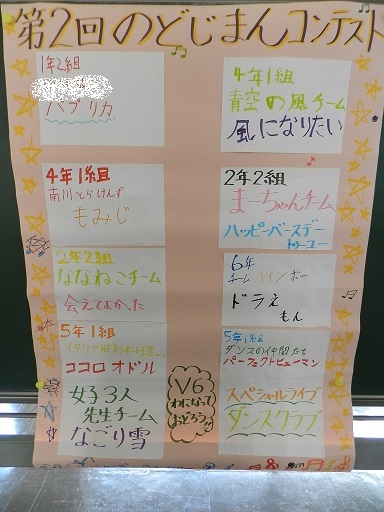 第2回のどじまんコンテスト
1年2組
パプリカ
4年1組
南川とらけんず
もみじ
2年2組
ななねこチーム
会えてよかった
5年1組
ココロオドル
女子3人
先生チーム
なごり雪
4年1組
青空の風チーム
風になりたい
2年2組
まーちゃんチーム
ハッピーバースデー
トゥーユー
6年
チームレインボー
ドラえ
もん
5年1組
ダンスの仲間たち
パーフェクトヒューマン
スペシャルライブ
ダンスクラブ
V6
わになって
おどろう!!